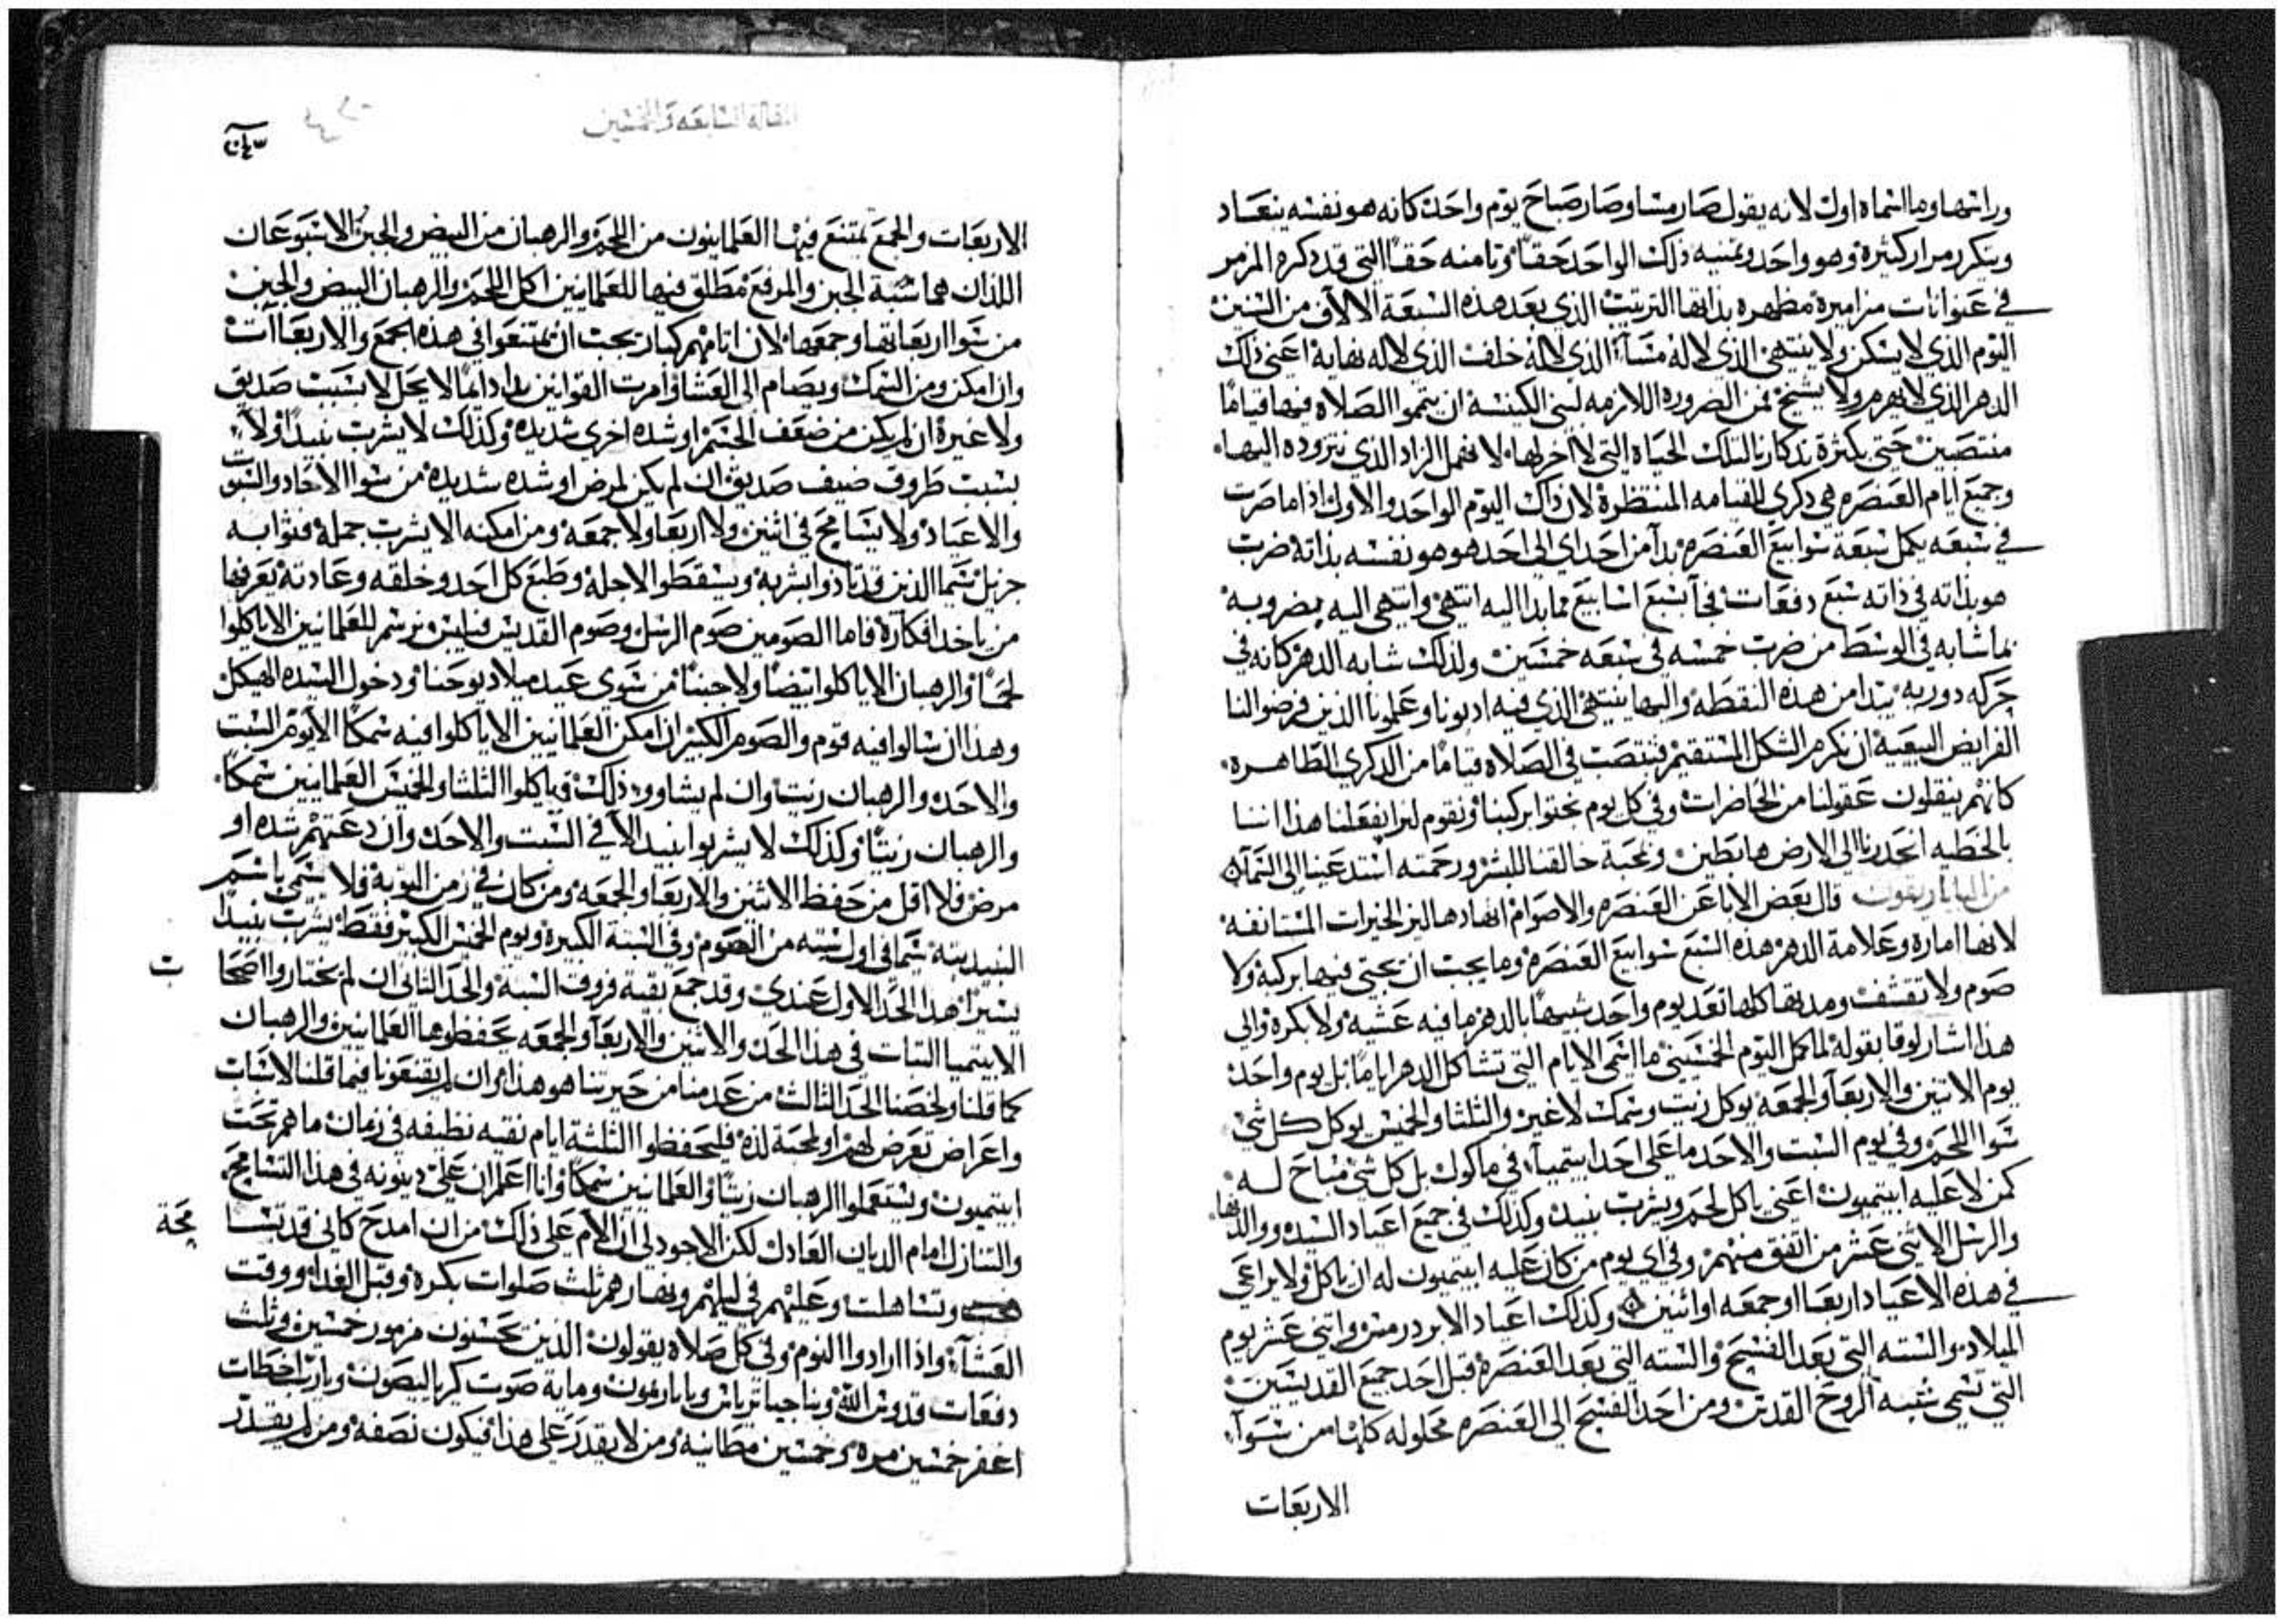 وراسها وما اسماه اول لانه يقول صار مسا وصار صباح يوم واحد كانه هو نفسه يتعاد
ويتكرر مرار كثيرة وهو واحد وتمنيه ذلك الواحد حقا وثامنه حقا التي قد ذكره المزمور
في عنوانات مزاميره مظهره بذاتها الترتيب الذي بعد هذه السبعة الالاف من السنين
اليوم الذي لا يسكن ولا ينتهي الذي لا له مساء الذي لا له خلف الذي لا له نهاية اعني ذلك
الدهر الذي لا يهرم ولا يشيخ فمن الضروره اللازمه لبني الكنيسه ان يتموا الصلاه فيها قياما
منتصبين حتى بكثرة تذكارنا لتلك الحياة التي لا اخر لها لا نهمل الزاد الذي نتزوده اليها
وجميع ايام العنصره هي ذكرى للقيامه المنتظرة لان ذاك اليوم الواحد والاول اذا ما ضرب
في سبعه يكمل سبعة سوابيع العنصره بدا من احد اي الى احد هو هو نفسه بذاته ضرب
هو بذاته في ذاته سبع دفعات فجا سبع اسابيع مما بدا اليه انتهى وانتهى اليه بضروبه
بما شابه في الوسط من ضرب خمسه في سبعه خمسين ولذلك شابه الدهر كانه في
حركه دوريه يبتدا من هذه النقطه واليها ينتهي الذي فيه ادبونا وعلمونا الذين فرضوا لنا
الفرايض البيعية ان نكرم الشكل المستقيم فننتصب في الصلاه قياما من الذكرى الظاهره
كانهم ينقلون عقولنا من الحاضرات وفي كل يوم نحثوا بركبنا ونقوم لنرا بفعلنا هذا اننا
بالخطيه انحدرنا الى الارض هابطين ومحبة خالقنا للبشر ورحمته استدعتنا الى السماء
قال بعض الابا عن العنصره والاصوام انها دهاليز الخيرات المستانفه
لانها امارة وعلامة الدهر هذه السبع سوابيع العنصره وما يجب ان يجثى فيها بركبة ولا
صوم ولا تقشف ومدتها كلها تعد يوم واحد شبيها بالدهر ما فيه عشيه ولا بكره والى
هذا اشار لوقا بقوله لما كمل اليوم الخمسيني ما اسمى الايام التي تشاكل الدهر اياما بل يوم واحد
يوم الاثنين والاربعا والجمعه يوكل زيت وسمك لا غير والثلثا والخميس يوكل كل شي
سوا اللحم وفي يوم السبت والاحد ما على احد ابيتيميا في ماكول بل كل شي مباح له
كمن لا عليه ابيتيميون اعني ياكل لحم ويشرب نبيد وكذلك في جميع اعياد السيد ووالدتها
والرسل الاثني عشر من اتفق منهم وفي اي يوم من كان عليه ابيتيميون له ان ياكل ولا يراعي
في هذه الاعياد اربعا او جمعه او اثنين وكذلك اعياد الابرودرمس واثني عشر يوم
الميلاد والسته التي بعد الفسيح والسته التي بعد العنصرة قبل احد جميع القديسين
التي تسمى سبة الروح القدس ومن احد الفسح الى العنصره محلوله كلها من سوا
الاربعات
المقاله السابعه والخمسين
الاربعات والجمع يمتنع فيها العلمانيون من اللحم والرهبان من البيض والجبن الاسبوعان
اللذان هما سبة الجبن والمرفع مطلق فيها للعلمانيين اكل اللحم والرهبان البيض والجبن
من سوا اربعاتها وجمعها لان اثامهم كبار يجب ان يمتنعوا في هذه الجمع والاربعاات
وان امكن ومن السمك ويصام الى العشا وامرت القوانين بذا دايما لا يحل لا بسبب صديق
ولا غيرة ان لم يكن من ضعف الجسم او شده اخرى شديده وكذلك لا يشرب نبيدا ولا
بسبب طروف ضيف صديق ان لم يكن لمرض او شده شديدة من سوا الاحاد والسبوت
والاعياد ولا يتسامح في اثنين ولا اربعا ولا جمعه ومن امكنه الا يشرب جمله فثوابه
جزيل سيما الذين قد تادوا بشربه ويسقطوا لاجله وطبع كل احد وخلقه وعادته يعرفها
من ياخد افكاره فاما الصومين صوم الرسل وصوم القديس فيلبس نرسم للعلمانيين الا ياكلوا
لحما والرهبان الا ياكلوا بيضا ولا جبنا من سوى عيد ميلاد يوحنا ودخول السيده الهيكل
وهذا ان سالوا فيه قوم والصوم الكبير ان امكن العلمانيين الا ياكلوا فيه سمكا الا يوم السبت
والاحد والرهبان زيت وان لم يشاوو ذلك فياكلوا الثلثا والخميس العلمانيين سمكا
والرهبان زيتا وكذلك لا يشربوا نبيد الا في السبت والاحد وان دعتهم شده او
مرض فلا اقل من حفظ الاثنين والاربعا والجمعه ومن كان في زمن التوبة فلا يسمى باسم
النبيد بته سيما في اول سته من الصوم وفي السبة الكبيرة ويوم الخميس الكبير فقط يشرب نبيدا
يسيرا هذا الحد الاول عندي وقد جمع بقية فروق السبة والحد الثاني ان لم يختاروا اصحا
ب
الابيتيميا الثبات في هذا الحد والاثنين والاربعا والجمعه يحفظوها العلمانيين والرهبان
كما قلنا ولخصنا الحد الثالث من عدمنا من حيرتنا هو هذا وان لم يقنعونا فيما قلنا لاسباب
واعراض تعرض لهم او لمحبة لذه فليحفظوا الثلثة ايام نقيه نظيفه في زمان ما هم تحت
ابيتيميون ويستعملوا الرهبان زيتا والعلمانيين سمكا وانا اعلم ان علي دينونه في هذا التسامح
والتنازل امام الديان العادل لكن الاجود لي ان الام على ذلك من ان امدح كاني قد تشا
محة
وتساهلت وعليهم في ليلهم ونهارهم ثلث صلوات بكرة وقبل الغدا ووقت
العشاء واذا ارادوا النوم وفي كل صلاه يقولون الذين يحسنون مزمور خمسين وثلث
دفعات قدوس الله وبناجيا ترياس ويابا ريمون وماية صوت كرياليصون ويا رب اخطات
اغفر خمسين مره وخمسين مطانيه ومن لا يقدر على هذا فيكون نصفه ومن لم يقدر